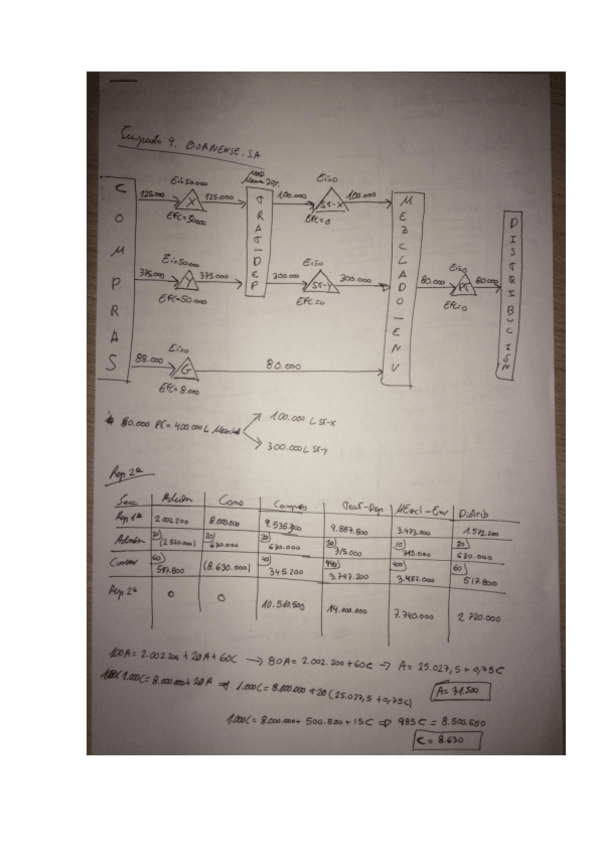 BORNENSE.SA
Ei=50.000
MOD
Ei=0
125.000 X 125.000
100.000 ST-X 100.000
EFC=50.000
EFC=0
COMPRAS
TRAT-DEP
MEZCLADO-ENV
DISTRIBUCIÓN
Ei=50.000
Ei=0
375.000 Y 375.000
300.000 ST-Y 300.000
80.000 PT 80.000
EFC=50.000
EFC=0
Ei=0
EFC=0
Ei=0
88.000 G 80.000
EFC=8.000
80.000 PT = 400.000 L Mezcla
100.000 L ST-X
300.000 L ST-Y
Rep 2ª
Secc Admón Cons Compras Trat-Dep Mezcl-Env Distrib
Rep 1ª 2.002.200 8.000.000 9.535.300 9.887.800 3.473.000 1.572.200
Admón 20) (2.520.000) 20) 630.000 20) 630.000 315.000 630.000
60) 517.800 (8.630.000) 40) 345.200 440) 3.797.200 400) 3.452.000 60) 517.800
Rep 2ª 0 0 10.510.500 14.000.000 7.740.000 2.720.000
100A = 2.002.200 + 20A + 60C → 80A = 2.002.200 + 60C → A = 25.027,5 + 0,75C
1.000C = 8.000.000 + 20A ⇒ 1.000C = 8.000.000 + 20 (25.027,5 + 0,75C)
A = 31.500
1.000C = 8.000.000 + 500.550 + 15C ⇒ 985C = 8.500.550
C = 8.630